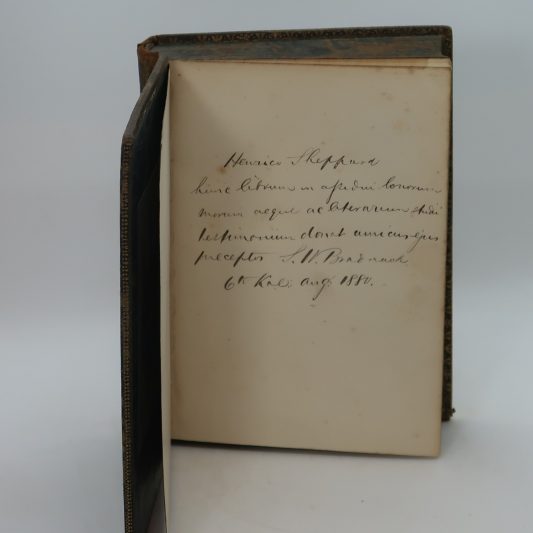 Henrico Sheppard
hunc librum in assidui bonorum
morum aeque ac literarum studii
testimonium donat amicus ejus
preceptor
6th Kal. Aug. 1880.